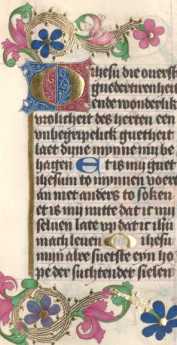 Ihesu die ouerst
guedertirenheit
ende wonderlik
vrolicheit des herten een
vnbegripelick guetheit
laet dyne mynne my be
hagen Et is my guet
ihesum to mynnen voert
an niet anders to soken
et is my nutte dat ic my
seluen late vp dat ic ihu
mach leuen Ihesu
myn alre suetste eyn ho
pe der suchtender sielen